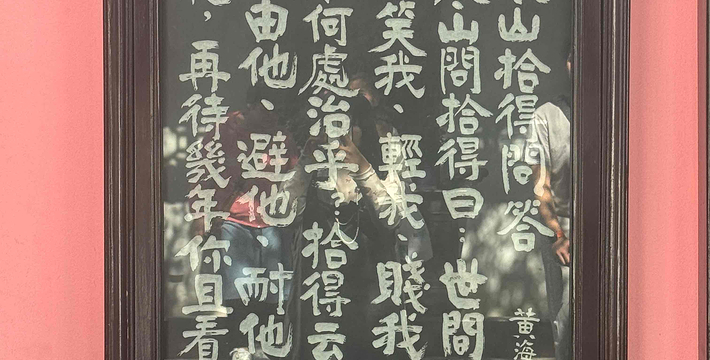 山拾得問答
黃海
山問拾得曰：世間
笑我、輕我、賤我
何處治乎？拾得云
由他、避他、耐他
，再待幾年你且看